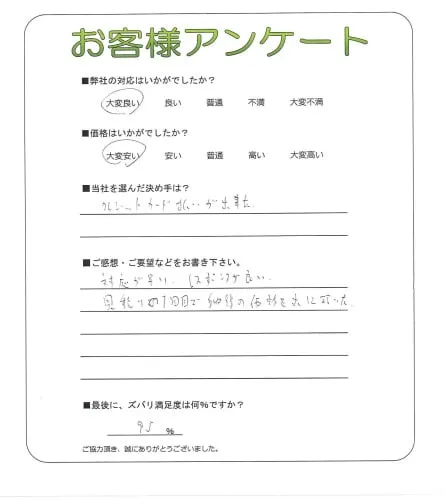 お客様アンケート
■弊社の対応はいかがでしたか？
大変良い 良い 普通 不満 大変不満
■価格はいかがでしたか？
大変安い 安い 普通 高い 大変高い
■当社を選んだ決め手は？
クレジットカード払いが出来た
■ご感想・ご要望などをお書き下さい。
対応が早い、レスポンスが良い
見積りの1回目で納得の価格を
■最後に、ズバリ満足度は何％ですか？
95 ％
ご協力頂き、誠にありがとうございました。